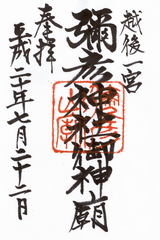 越後一宮
彌彦神社御神廟
奉拝
平成二十年七月二十二日